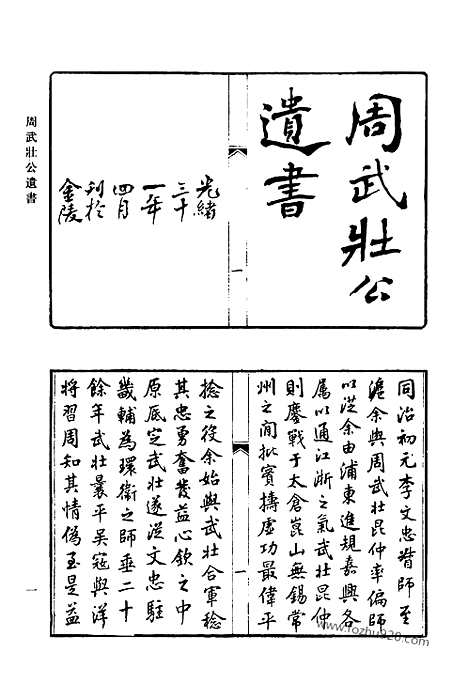 周武壯公
遺書
光緒
三十
一年
四月
刊於
金陵
一
周武壯公遺書
同治初元李文忠督師至
滬余與周武壯昆仲率偏師
以從余由浦東進規嘉興各
屬以通江浙之氣武壯昆仲
則鏖戰于太倉崑山無錫常
州之間批賓擣虛功最偉平
捻之役余始與武壯合軍稔
其忠勇奮發益心欽之中
原底定武壯遂從文忠駐
畿輔為環衛之師垂二十
餘年武壯曩平吳寇與洋
將習周知其情偽至是益
一
一
www.fozhu920.com